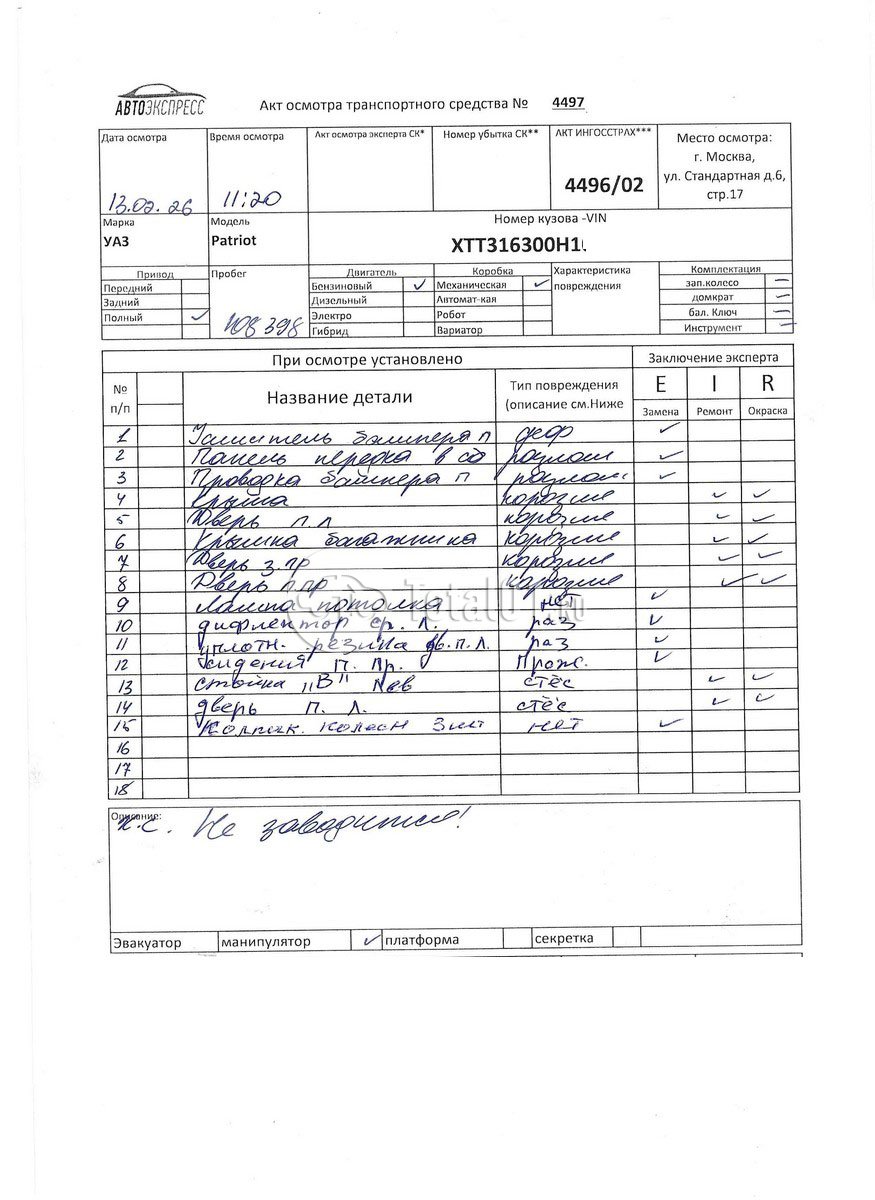 АВТОЭКСПРЕСС
Акт осмотра транспортного средства № 4497
Дата осмотра
13.02.26
Время осмотра
11:20
Акт осмотра эксперта СК*
Номер убытка СК**
АКТ ИНГОССТРАХ***
4496/02
Место осмотра:
г. Москва,
ул. Стандартная д.6,
стр.17
Марка
УАЗ
Модель
Patriot
Номер кузова -VIN
XTT316300H1
Привод
Передний
Задний
Полный ✓
Пробег
108 398
Двигатель
Бензиновый ✓
Дизельный
Электро
Гибрид
Коробка
Механическая ✓
Автомат-кая
Робот
Вариатор
Характеристика
повреждения
Комплектация
зап.колесо —
домкрат —
бал. Ключ —
Инструмент —
При осмотре установлено
Заключение эксперта
№
п/п
Название детали
Тип повреждения
(описание см.Ниже
E I R
Замена Ремонт Окраска
1 Усилитель бампера п деф ✓
2 Панель передка в сб разлом ✓
3 Проводка бампера п разлом ✓
4 Крыша корозие ✓ ✓
5 Дверь п.л корозие ✓ ✓
6 Крышка багажника корозие ✓ ✓
7 Дверь з.пр корозие ✓ ✓
8 Дверь п.пр корозие ✓ ✓
9 Лампа потолка нет ✓
10 дифлектор ср. л. раз ✓
11 уплотн. резинка дв. п.л. раз ✓
12 Сидения п. пр. Прож. ✓
13 стойка "В" лев стёс ✓ ✓
14 дверь п. л. стёс ✓ ✓
15 Колпак колеса 3шт нет ✓
16
17
18
Описание:
Не заводится!
Эвакуатор манипулятор ✓ платформа секретка